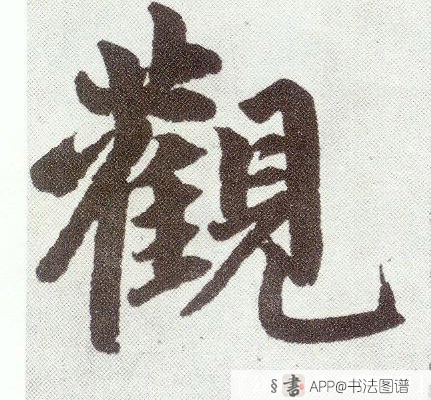 觀
§書 APP@书法图谱